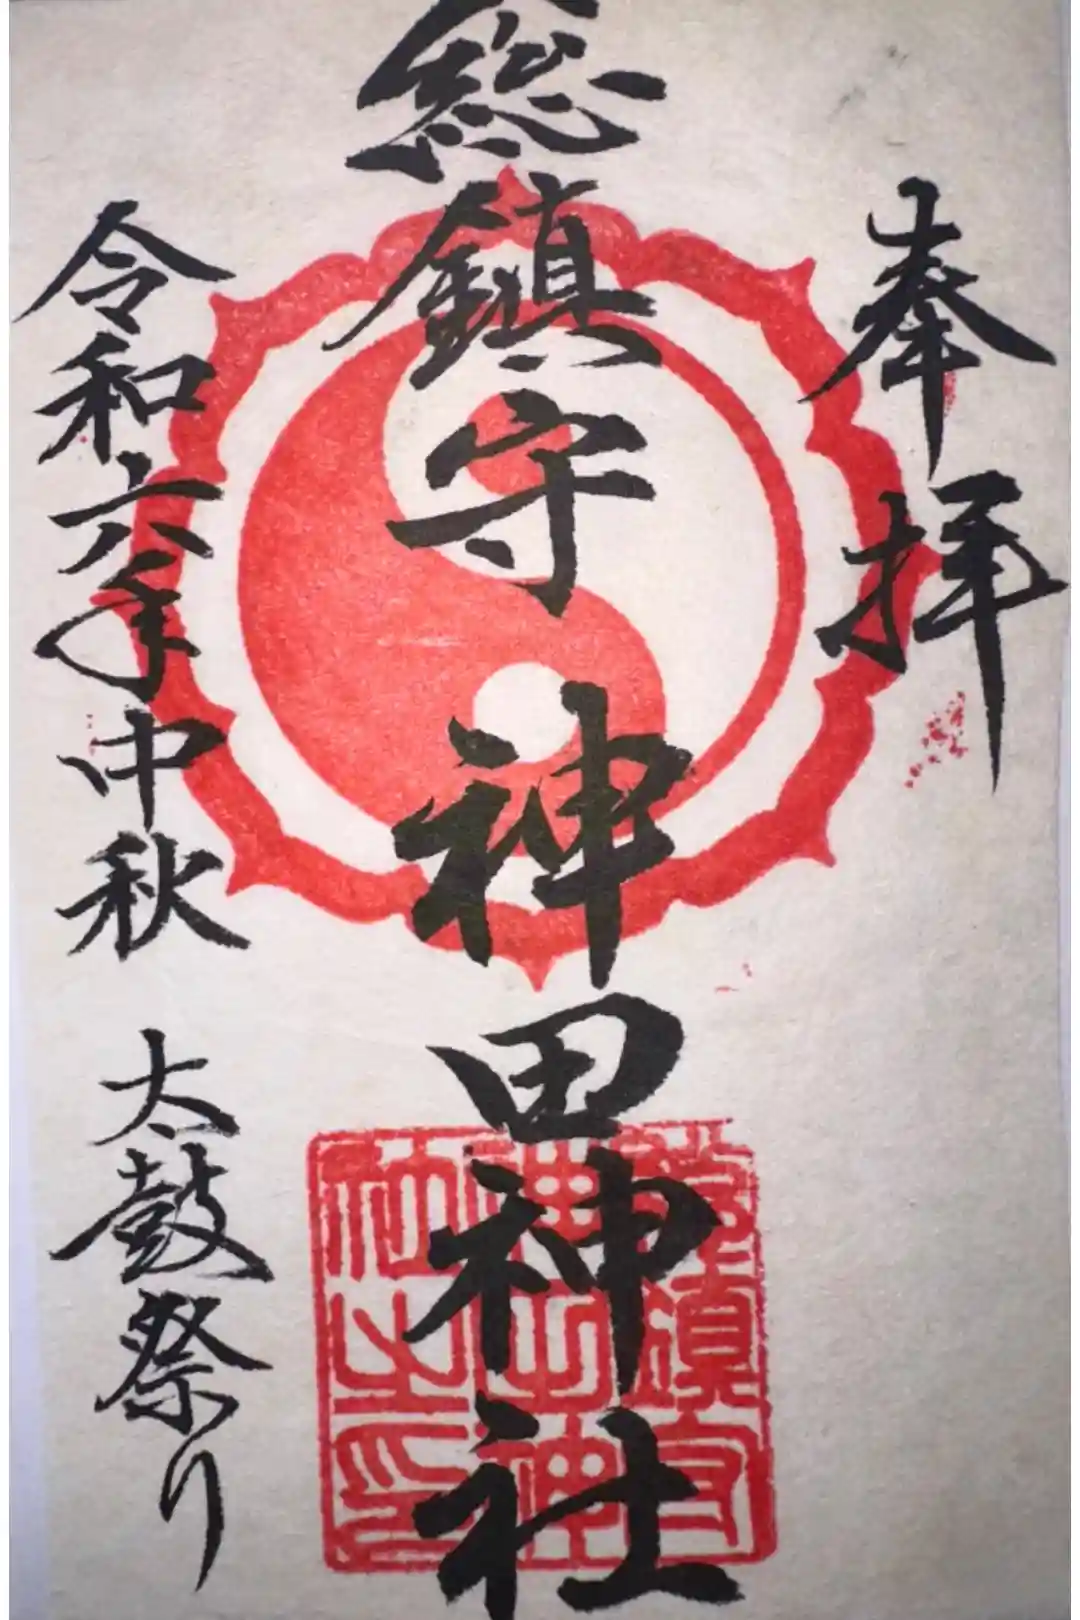 奉拝
総鎮守 神田神社
鎮守
社之印
令和六年中秋 太鼓祭り